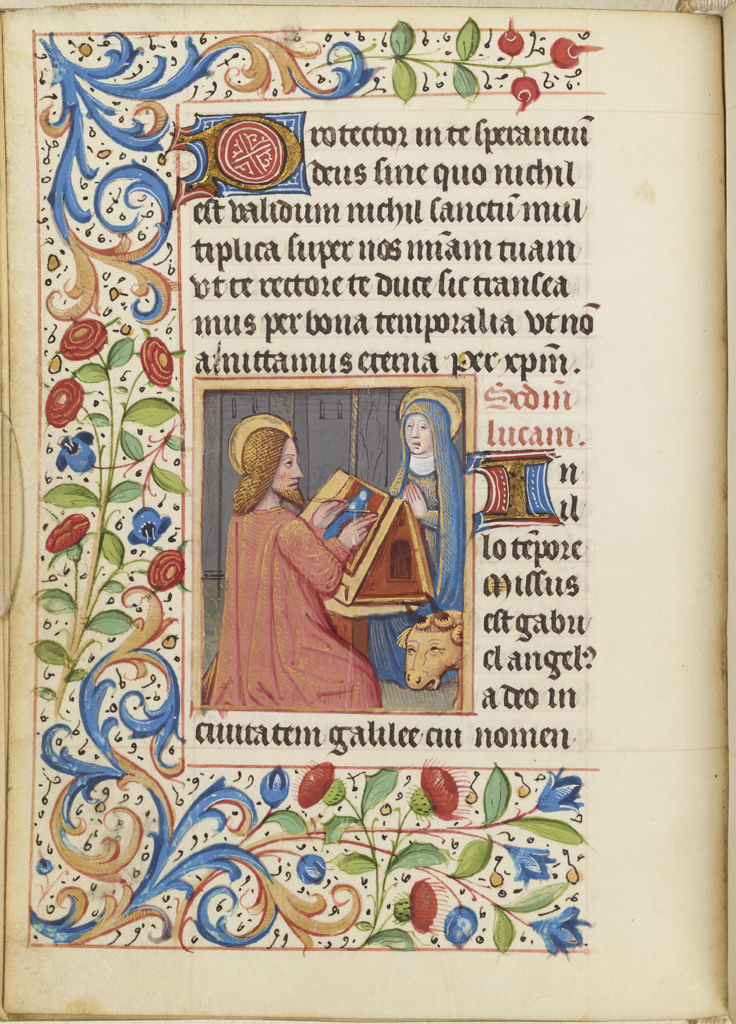 Protector in te speranciū
deus sine quo nichil
est validum nichil sanctū mul
tiplica super nos mīam tuam
vt te rectore te duce sic transea
mus per bona temporalia vt nō
amittamus eterna per xpm̄.
Scdm̄
lucam.
In
il
lo tēpore
Missus
est gabri
el angelꝰ
a deo in
ciuitatem galilee cui nomen